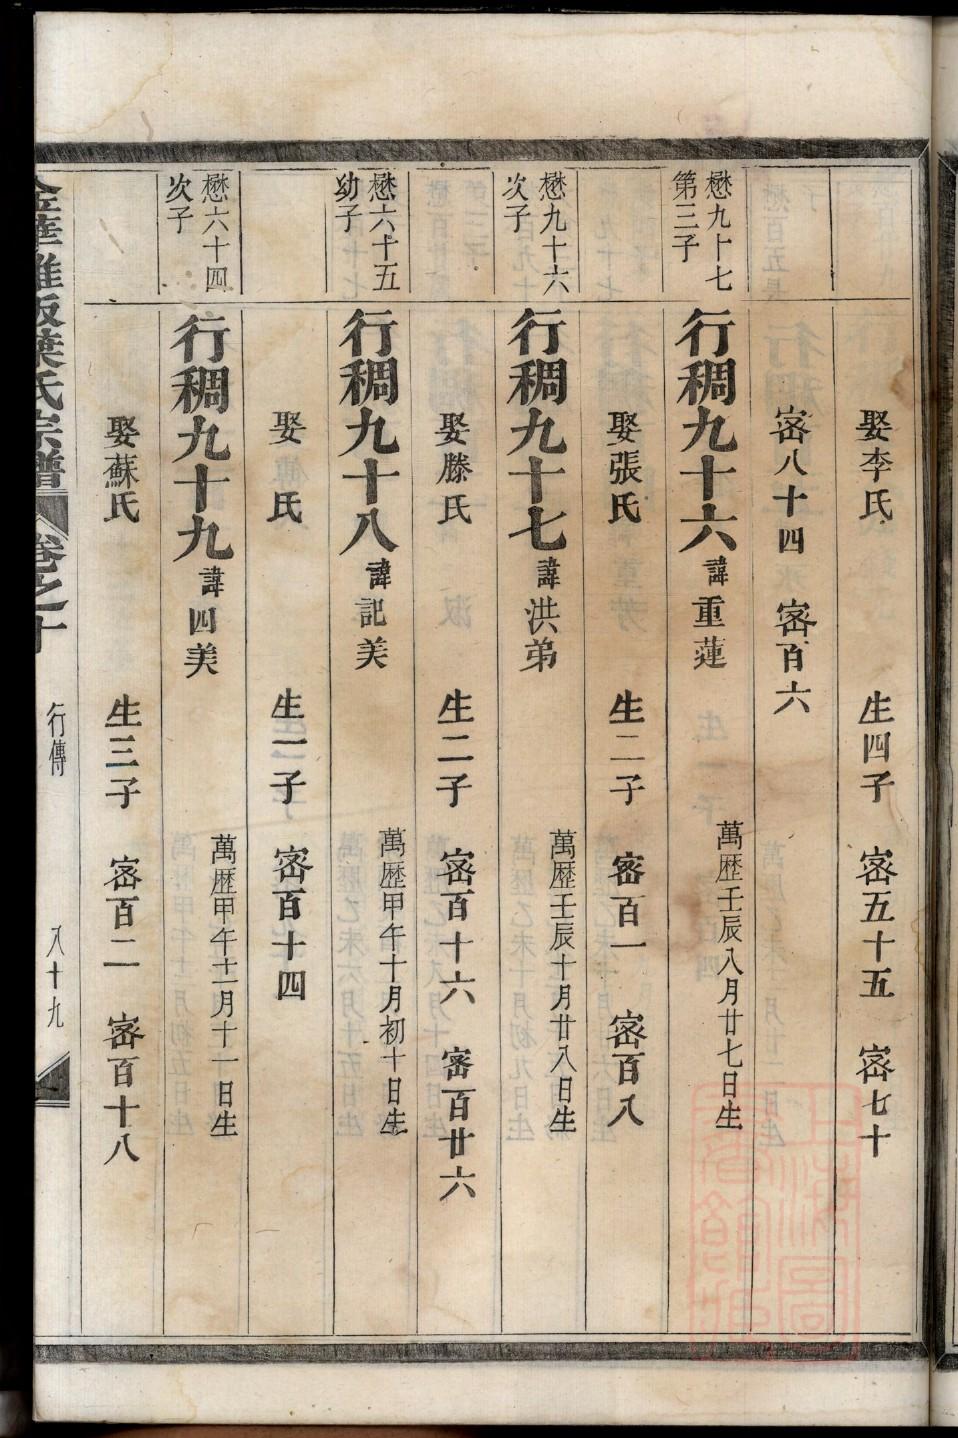 娶李氏 生四子 密五十五 密七十
密八十四 密百六
懋九十七
第三子
行稠九十六 諱重蓮 萬歷壬辰八月廿七日生
娶張氏 生二子 密百一 密百八
懋九十六
次子
行稠九十七 諱洪弟 萬歷壬辰十月廿八日生
娶滕氏 生二子 密百十六 密百廿六
懋六十五
幼子
行稠九十八 諱記美 萬歷甲午十月初十日生
娶 氏 生一子 密百十四
懋六十四
次子
行稠九十九 諱四美 萬歷甲午十一月十一日生
娶蘇氏 生三子 密百二 密百十八
金華雅畈葉氏宗譜 卷之十 行傳 八十九